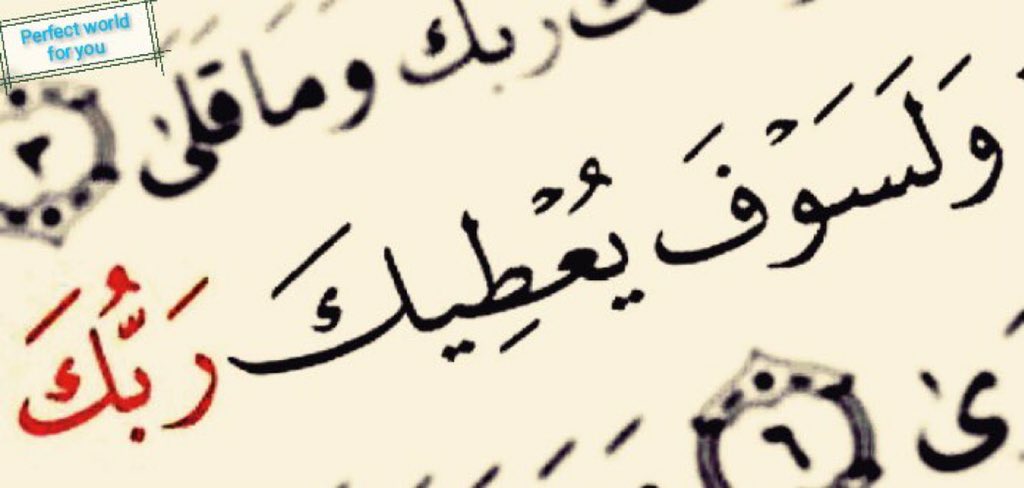 Perfect world
for you
ربك وما قلى ٣
وَلَسَوْفَ يُعْطِيكَ رَبُّكَ
٦